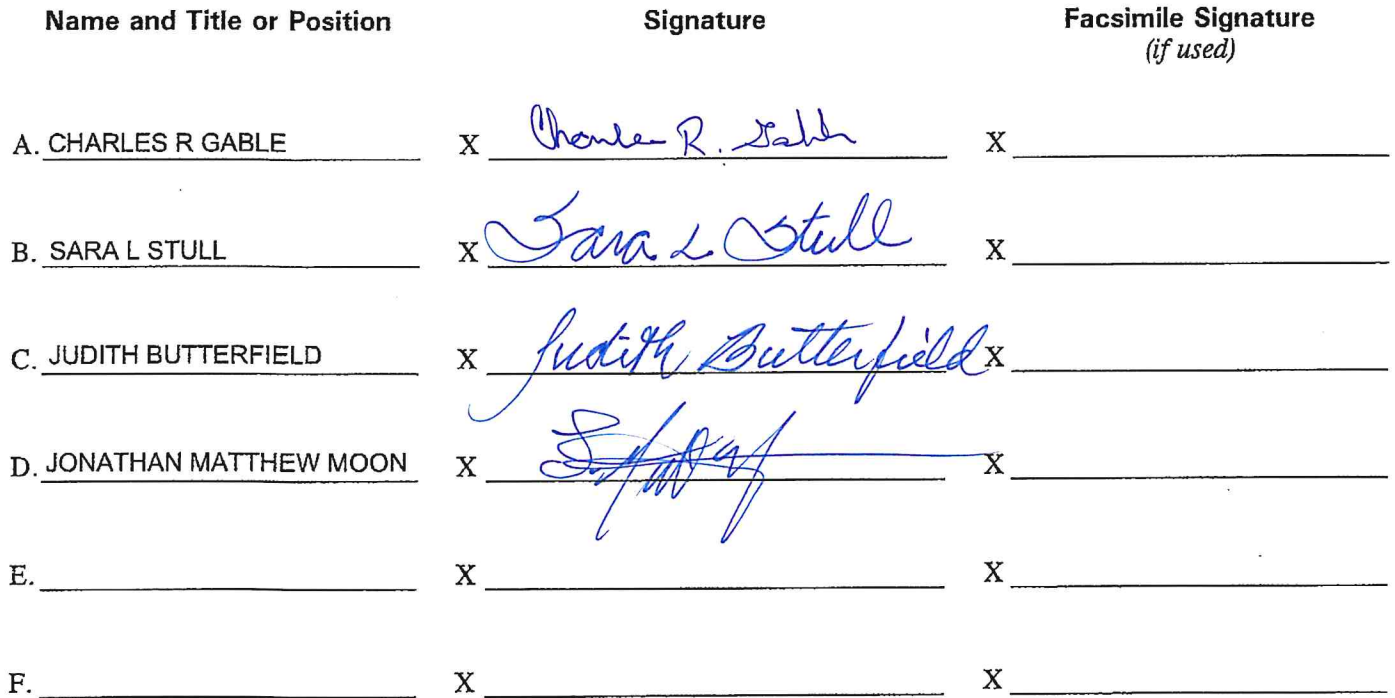 Name and Title or Position Signature Facsimile Signature
(if used)
A. CHARLES R GABLE X Charles R. Gable X
B. SARA L STULL X Sara L Stull X
C. JUDITH BUTTERFIELD X Judith Butterfield X
D. JONATHAN MATTHEW MOON X X
E. X X
F. X X